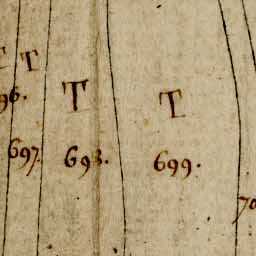 T T
96.
T T
697. 698. 699.
70